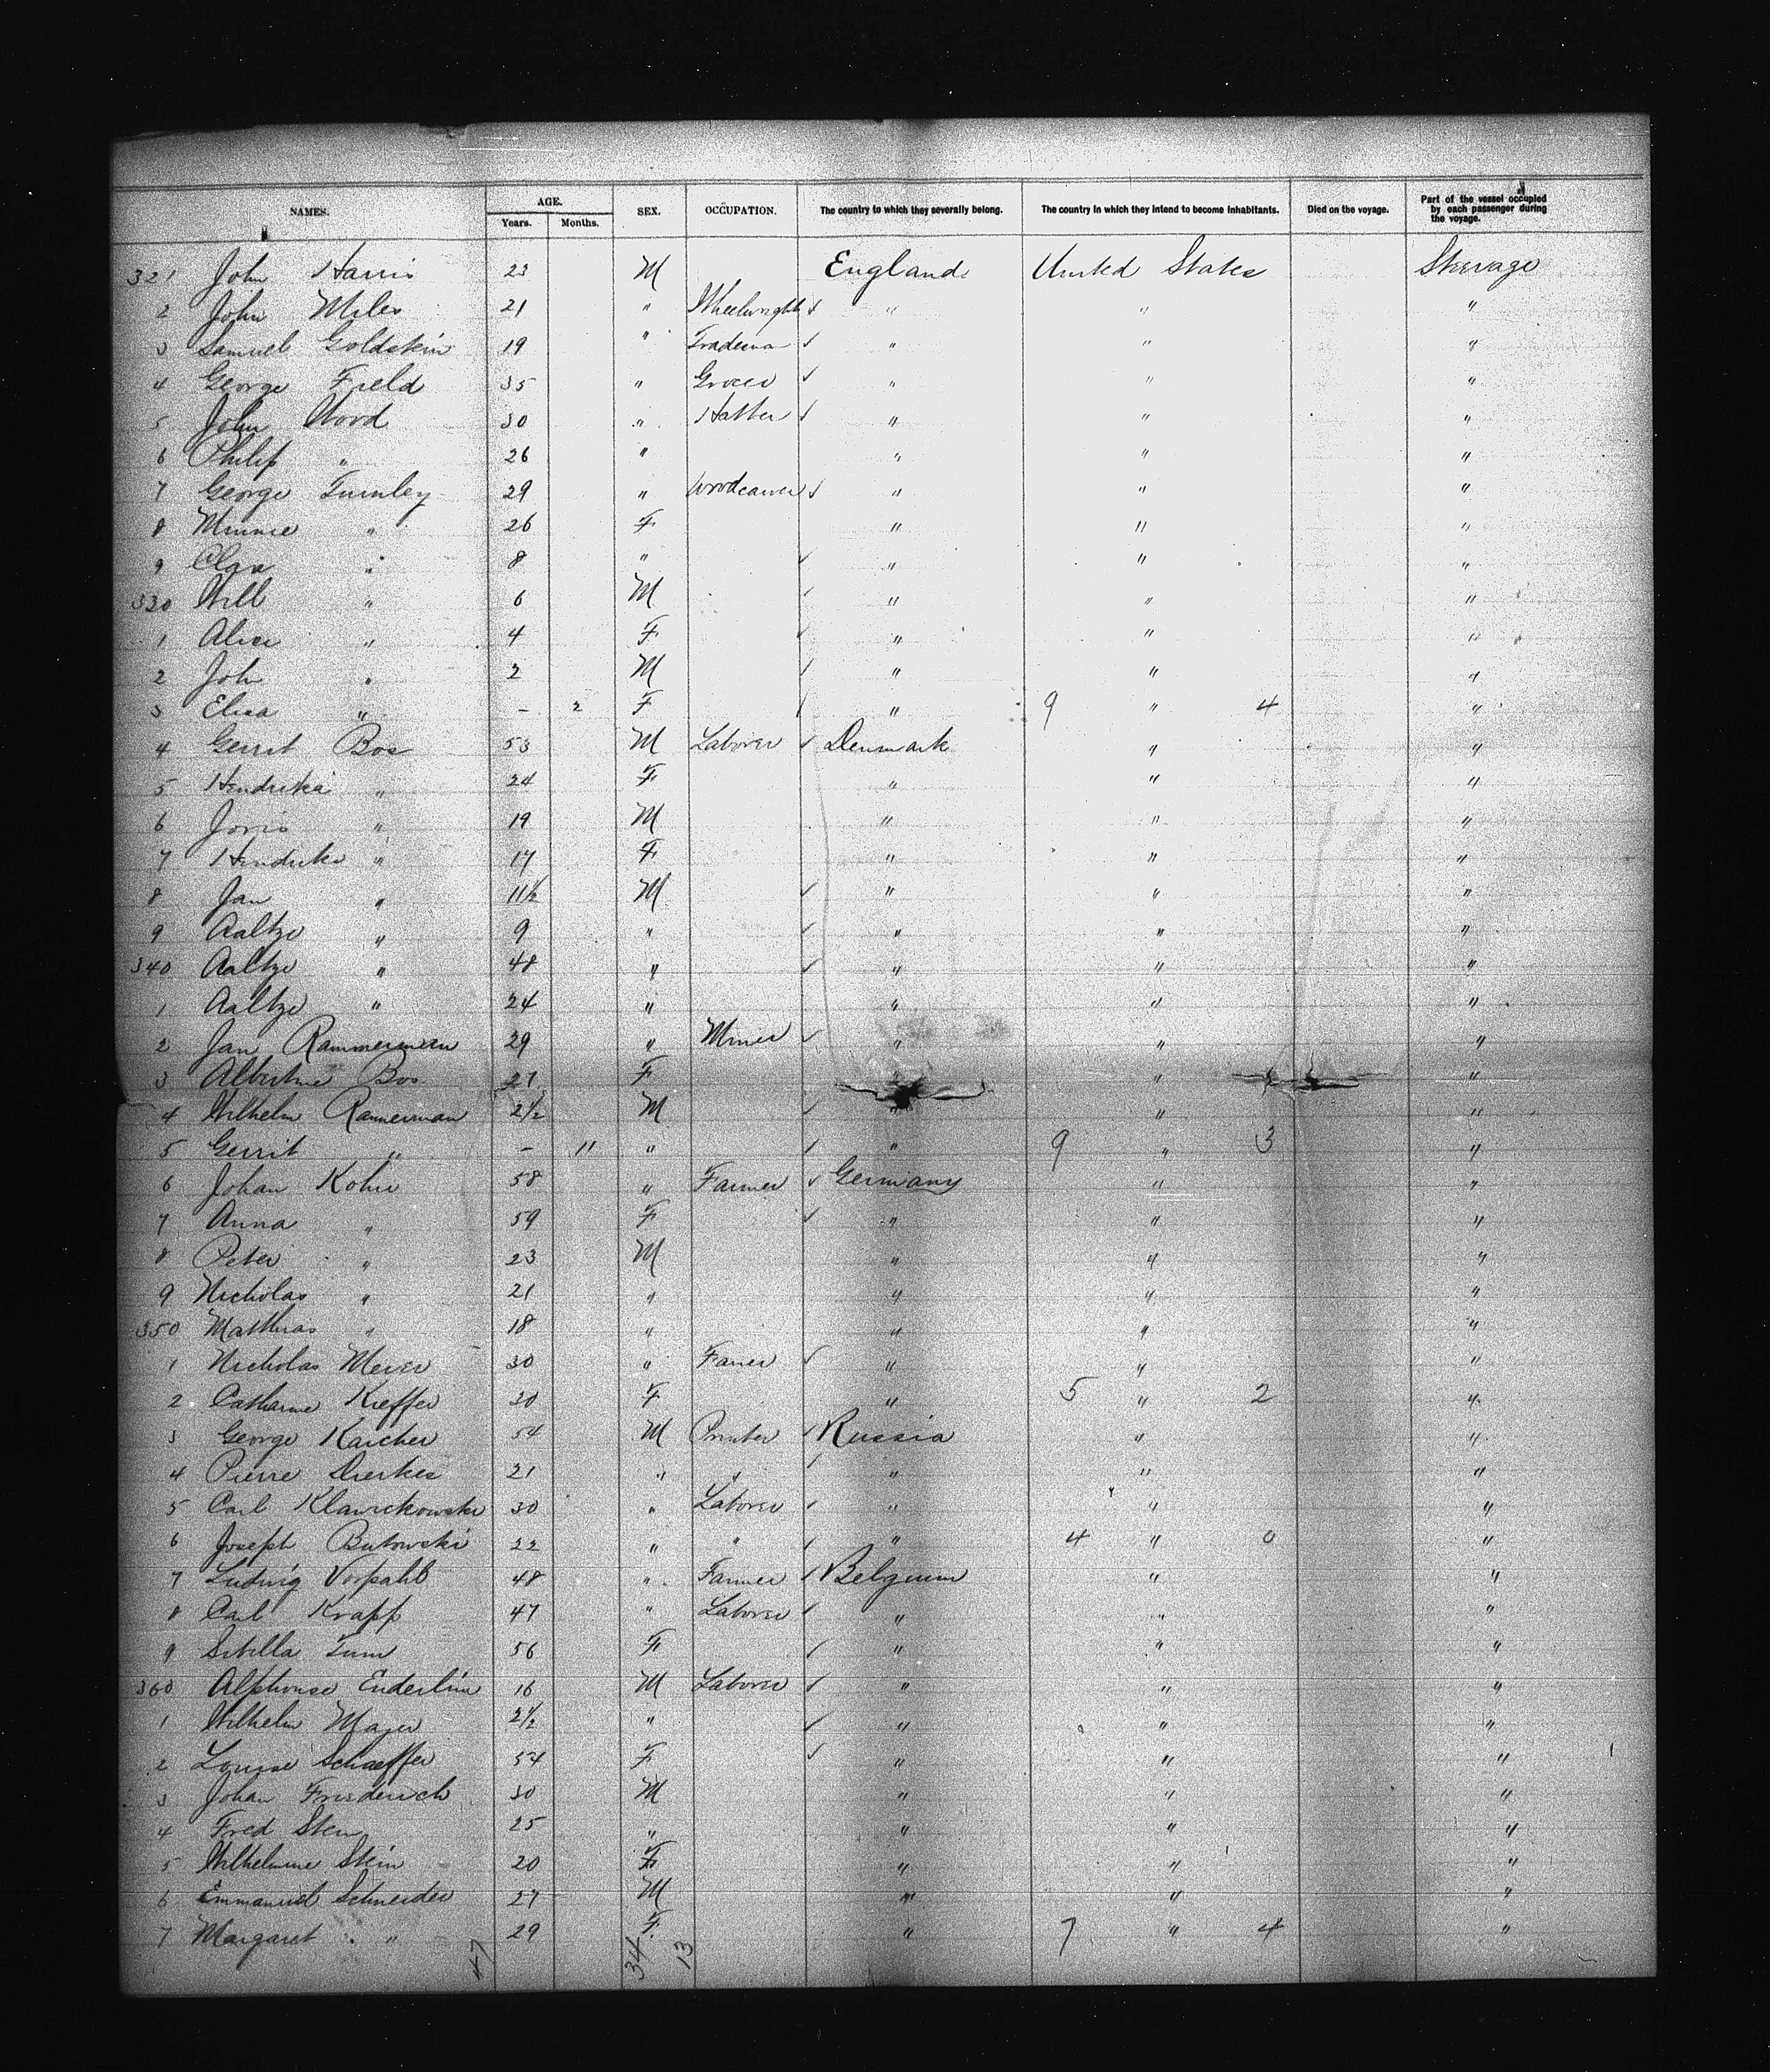 NAMES. AGE. SEX. OCCUPATION. The country to which they severally belong. The country in which they intend to become inhabitants. Died on the voyage. Part of the vessel occupied by each passenger during the voyage.
Years. Months.
321 John Harris 23 M England United States Steerage
2 John Miles 21 " Wheelwright " " "
3 Samuel Goldstein 19 " " " "
4 George Field 35 " Grocer " " "
5 John Wood 30 " Hatter " " "
6 Philip " 26 " " " "
7 George Turnley 29 " Woodcarver " " "
8 Minnie " 26 F " " "
9 Clara " 8 " " " "
330 Will " 6 M " " "
1 Alice " 4 F " " "
2 John " 2 M " " "
3 Eliza " - 2 F " 9 " 4 "
4 Gerrit Bos 53 M Laborer Denmark " "
5 Hendrika " 24 F " " "
6 Joris " 19 M " " "
7 " 17 F " " "
8 Jan " 11½ M " " "
9 Aaltze " 9 " " " "
340 Aaltze " 48 " " " "
1 Aaltze " 24 " " " "
2 Jan Rammerman 29 " Miner " " "
3 Albertine Bos 27 F " "
4 Wilhelm Rammerman 2½ M " "
5 Gerrit " - 11 " " 9 " 3 "
6 Johan Kohn 58 " Farmer Germany " "
7 Anna " 59 F " " "
8 Peter " 23 M " " "
9 Nicholas " 21 " " " "
350 Matthias " 18 " " " "
1 Nicholas Meyer 30 " Farmer " " "
2 Catharine Kieffer 30 F " 5 " 2 "
3 George Karcher 54 M Printer Russia " "
4 Pierre Dierkes 21 " " " " "
5 Carl 30 " Laborer " " "
6 Joseph Butowski 22 " " " 4 " 0 "
7 Ludwig Vorpahl 48 " Farmer Belgium " "
8 Carl Krapp 47 " Laborer " " "
9 Sibilla 56 F " " "
360 Alphonse Enderlin 16 M Laborer " " "
1 Wilhelm Mayer 2½ " " " "
2 Louise Schaeffer 54 F " " "
3 Johan Friederich 30 M " " "
4 Fred Stein 25 " " " "
5 Wilhelmine Stein 20 F " " "
6 Emmanuel Schneider 27 M " " "
7 Margaret " 29 F " 7 " 4 "
47 34 13